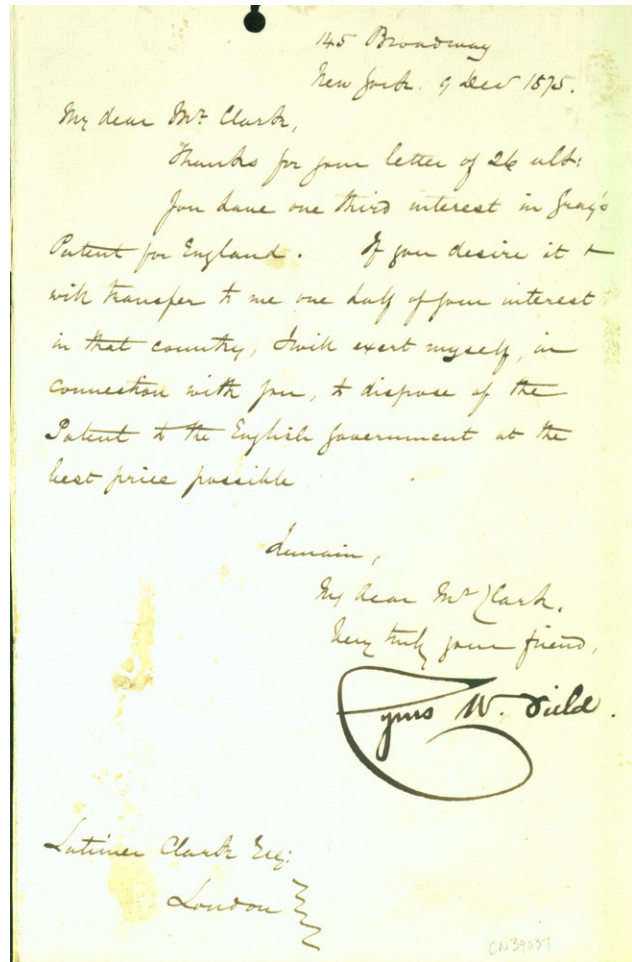 145 Broadway
New York. 9 Dec 1875.
My dear Mr Clark,
Thanks for your letter of 26 ult:
You have one third interest in Gray's
Patent for England. If you desire it &
will transfer to me one half of your interest
in that country, I will exert myself, in
connection with you, to dispose of the
Patent to the English Government at the
best price possible
I remain,
My dear Mr Clark,
Very truly your friend,
Cyrus W. Field.
Latimer Clark Esq:
London
CN39037